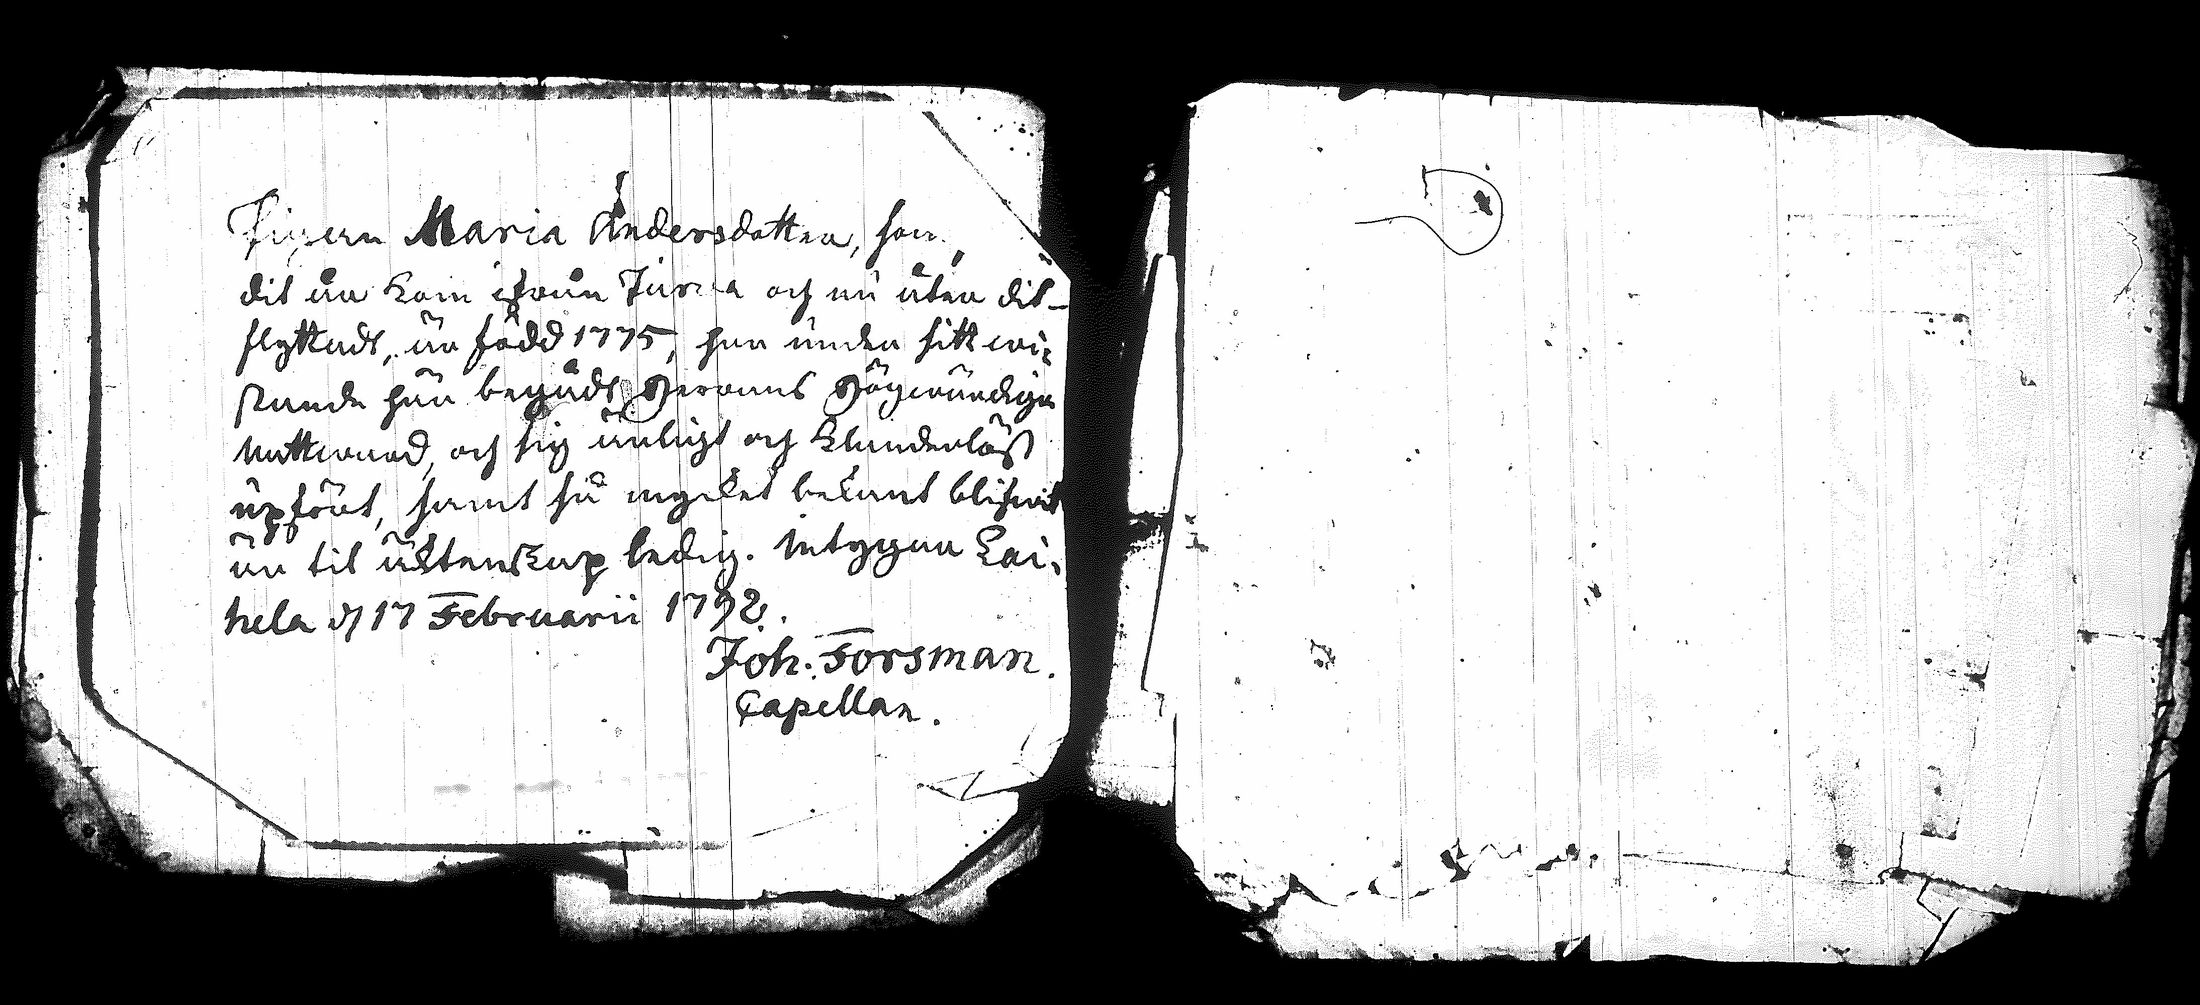 Pigan Maria Andersdotter, som
hit år kom ifrån Jurva och nu åter dit-
flyttadt, är född 1775, har under sitt wi-
stande här begådt Herrans Högwärdiga
Nattward, och sig ärligt och klanderlöst
upfört, samt så mycket bekant blifwit
är til äktenskap ledig. Intygar Lai-
hela d 17 Februarii 1792.
Joh. Forsman.
Capellan.